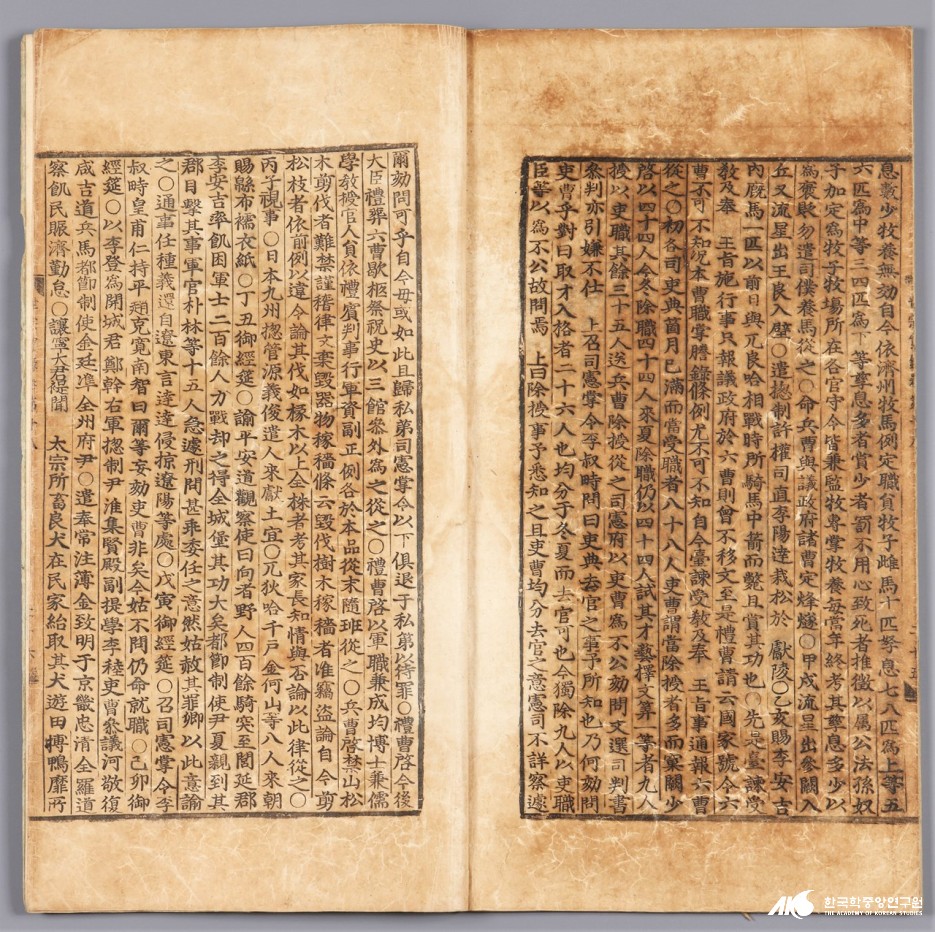 息數少牧養無効自今依濟州牧馬例定職貧牧子雌馬十匹孳息七八匹爲上等五
六匹爲中等三四匹爲下等孳息多者賞少者罰不用心致死者推徵以屬公法孫奴
子加定爲牧子牧場所在各官守令皆兼監牧專掌牧養每當年終考其孳息多少以
爲褒貶勿遣司僕養馬從之○命兵曹與議政府諸曹定烽燧○甲戌流星出參關入
丘又流星出王良入壁○遣摠制許權司直李陽達栽松於 獻陵○乙亥賜李安吉
內廐馬一匹以前日與兀良哈相戰時所騎馬中箭而斃且賞其功也○先是臺諫受
教及奉 王旨施行事只報議政府於六曹則曾不移文至是禮曹請云國家號令六
曹不可不知況本曹職掌謄錄條例尤不可不知自今臺諫受敎及奉 王旨事通報六曹
從之○初各司吏典箇月已滿而當受職者八十八人吏曹謂當除授者多而窠闕少
啓以四十四人今冬除職四十四人來夏除職仍以四十四人試其才藝擇文筭一等者九人
授以吏職其餘三十五人送兵曹除授從之司憲府以吏曹爲不公劾問文選司判書
參判亦引嫌不仕 上召司憲掌令李叔畤問曰吏典去官之事予所知也乃何劾問
吏曹乎對曰取才入格者二十六人也均分于冬夏而去官可也今獨除九人以吏職
臣等以爲不公故問焉 上曰除授事予悉知之且吏曹均分去官之意憲司不詳察遽
爾劾問可乎自今毋或如此且歸私第司憲掌令以下俱退于私第以待罪○禮曹啓今後
大臣禮葬六曹歇柩祭祝史以三館參外爲之從之○禮曹啓以軍職兼成均博士兼儒
學敎授官人員依禮賓判事行軍資副正例各於本品從末隨班從之○兵曹啓禁山松
木剪伐者難禁謹稽律文棄毀器物稼穡條云毀伐樹木稼穡者准竊盜論自今剪
松枝者依前例以違令論其伐如椽木以上全株者考其家長知情與否論以此律從之○
丙子視事○日本九州摠管源義俊遣人來獻土宜○兀狄哈千戶金何山等八人來朝
賜緜布襦衣紙○丁丑御經筵○諭平安道觀察使曰向者野人四百餘騎突至閭延郡
李安吉率飢困軍士二百餘人力戰却之得全城堡其功大矣都節制使尹夏親到其
郡目擊其事軍官朴林等十五人急遽刑問甚乖委任之意然姑赦其罪卿以此意諭
之○通事任種義還自遼東言達達侵掠遼陽等處○戊寅御經筵○召司憲掌令李
叔畤皇甫仁持平趙克寬南智曰爾等妄劾吏曹非矣今姑不問仍命就職○己卯御
經筵○以李登爲開城君鄭幹右軍摠制尹淮集賢殿副提學李稑吏曹參議河敬復
咸吉道兵馬都節制使金廷㠉全州府尹○遣奉常注簿金致明于京畿忠淸全羅道
察飢民賑濟勤怠○讓寧大君禔聞 太宗所畜良犬在民家紿取其犬遊田搏鴨靡所
한국학중앙연구원
THE ACADEMY OF KOREAN STUDIES